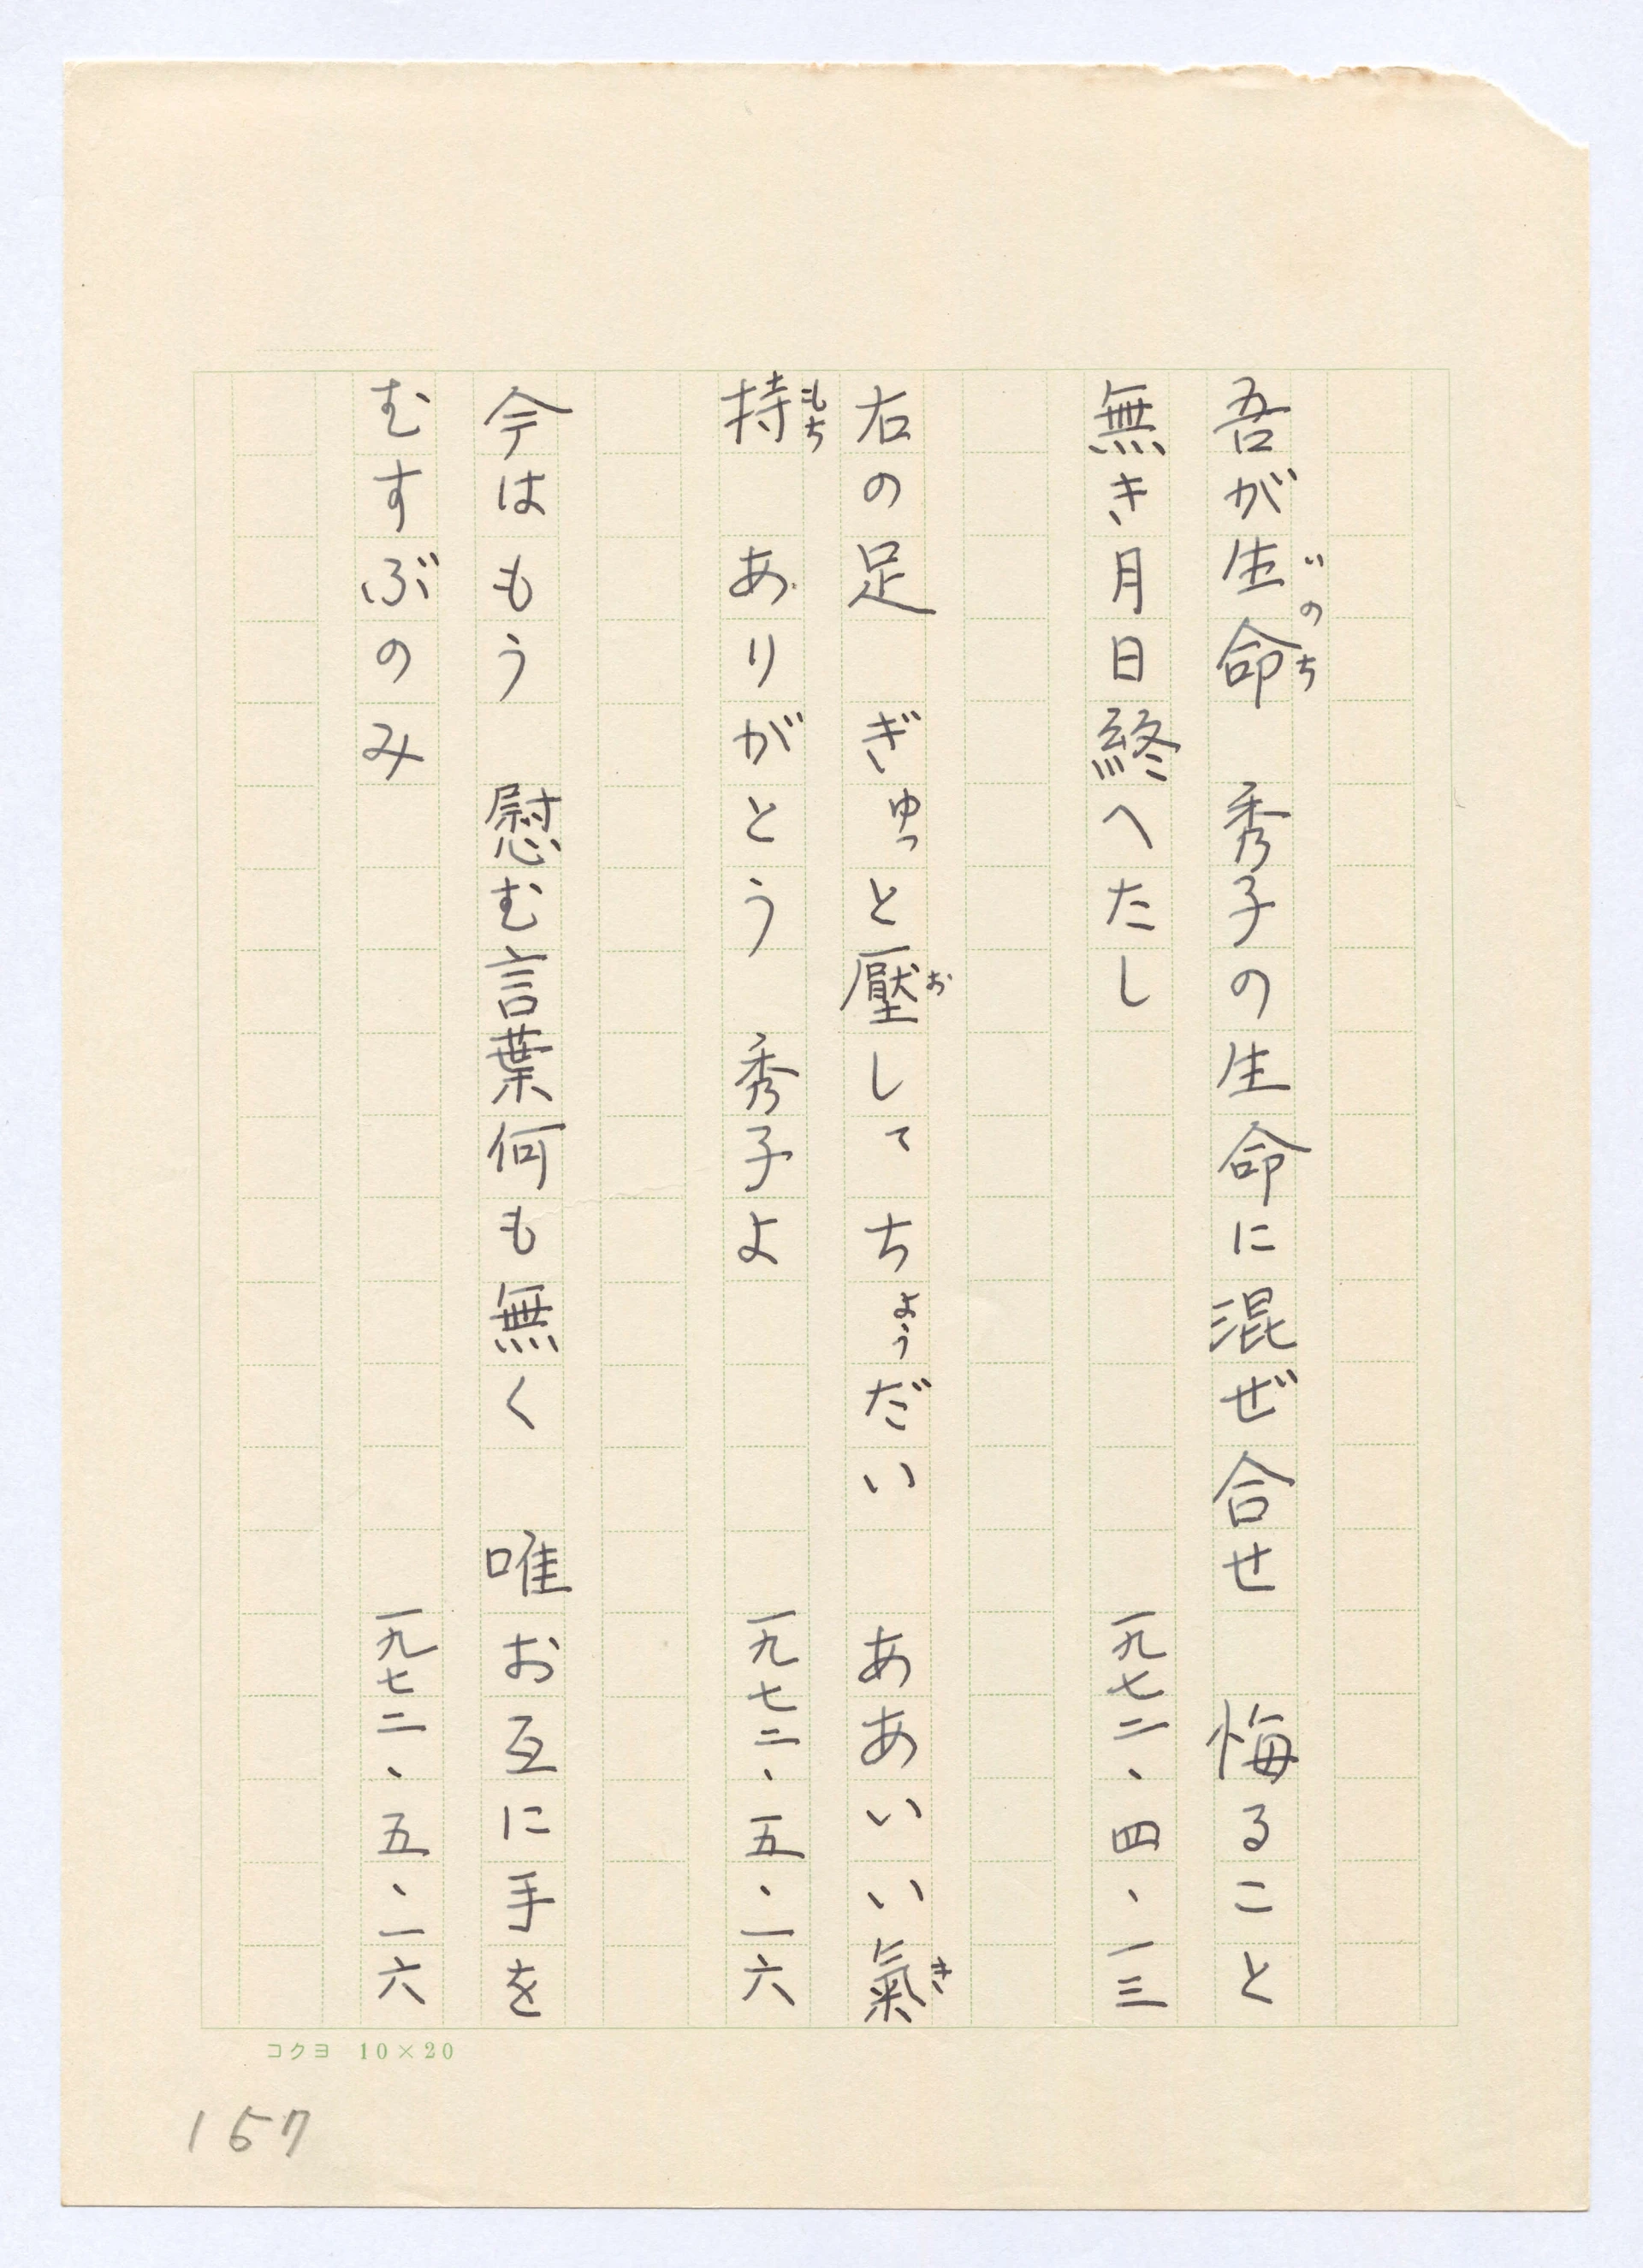 吾が生命　秀子の生命に混ぜ合せ　悔ること
いのち
無き月日終へたし　一九七二、四、一三
右の足　ぎゅっと壓して　ちょうだい　ああいい氣
お
き
持　ありがとう　秀子よ　一九七二、五、一六
もち
今はもう　慰む言葉何も無く　唯お互に手を
むすぶのみ　一九七二、五、一六
コクヨ 10×20
157